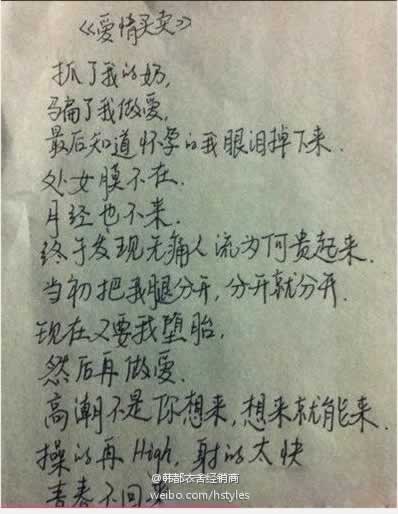 《爱情买卖》
抓了我的奶,
骗了我做爱,
最后知道怀孕的我眼泪掉下来.
处女膜不在.
月经也不来.
终于发现无痛人流为何贵起来.
当初把我腿分开,分开就分开.
现在又要我堕胎,
然后再做爱.
高潮不是你想来,想来就能来.
操的再High,射的太快
青春不回来
@韩都衣舍经销商
weibo.com/hstyles